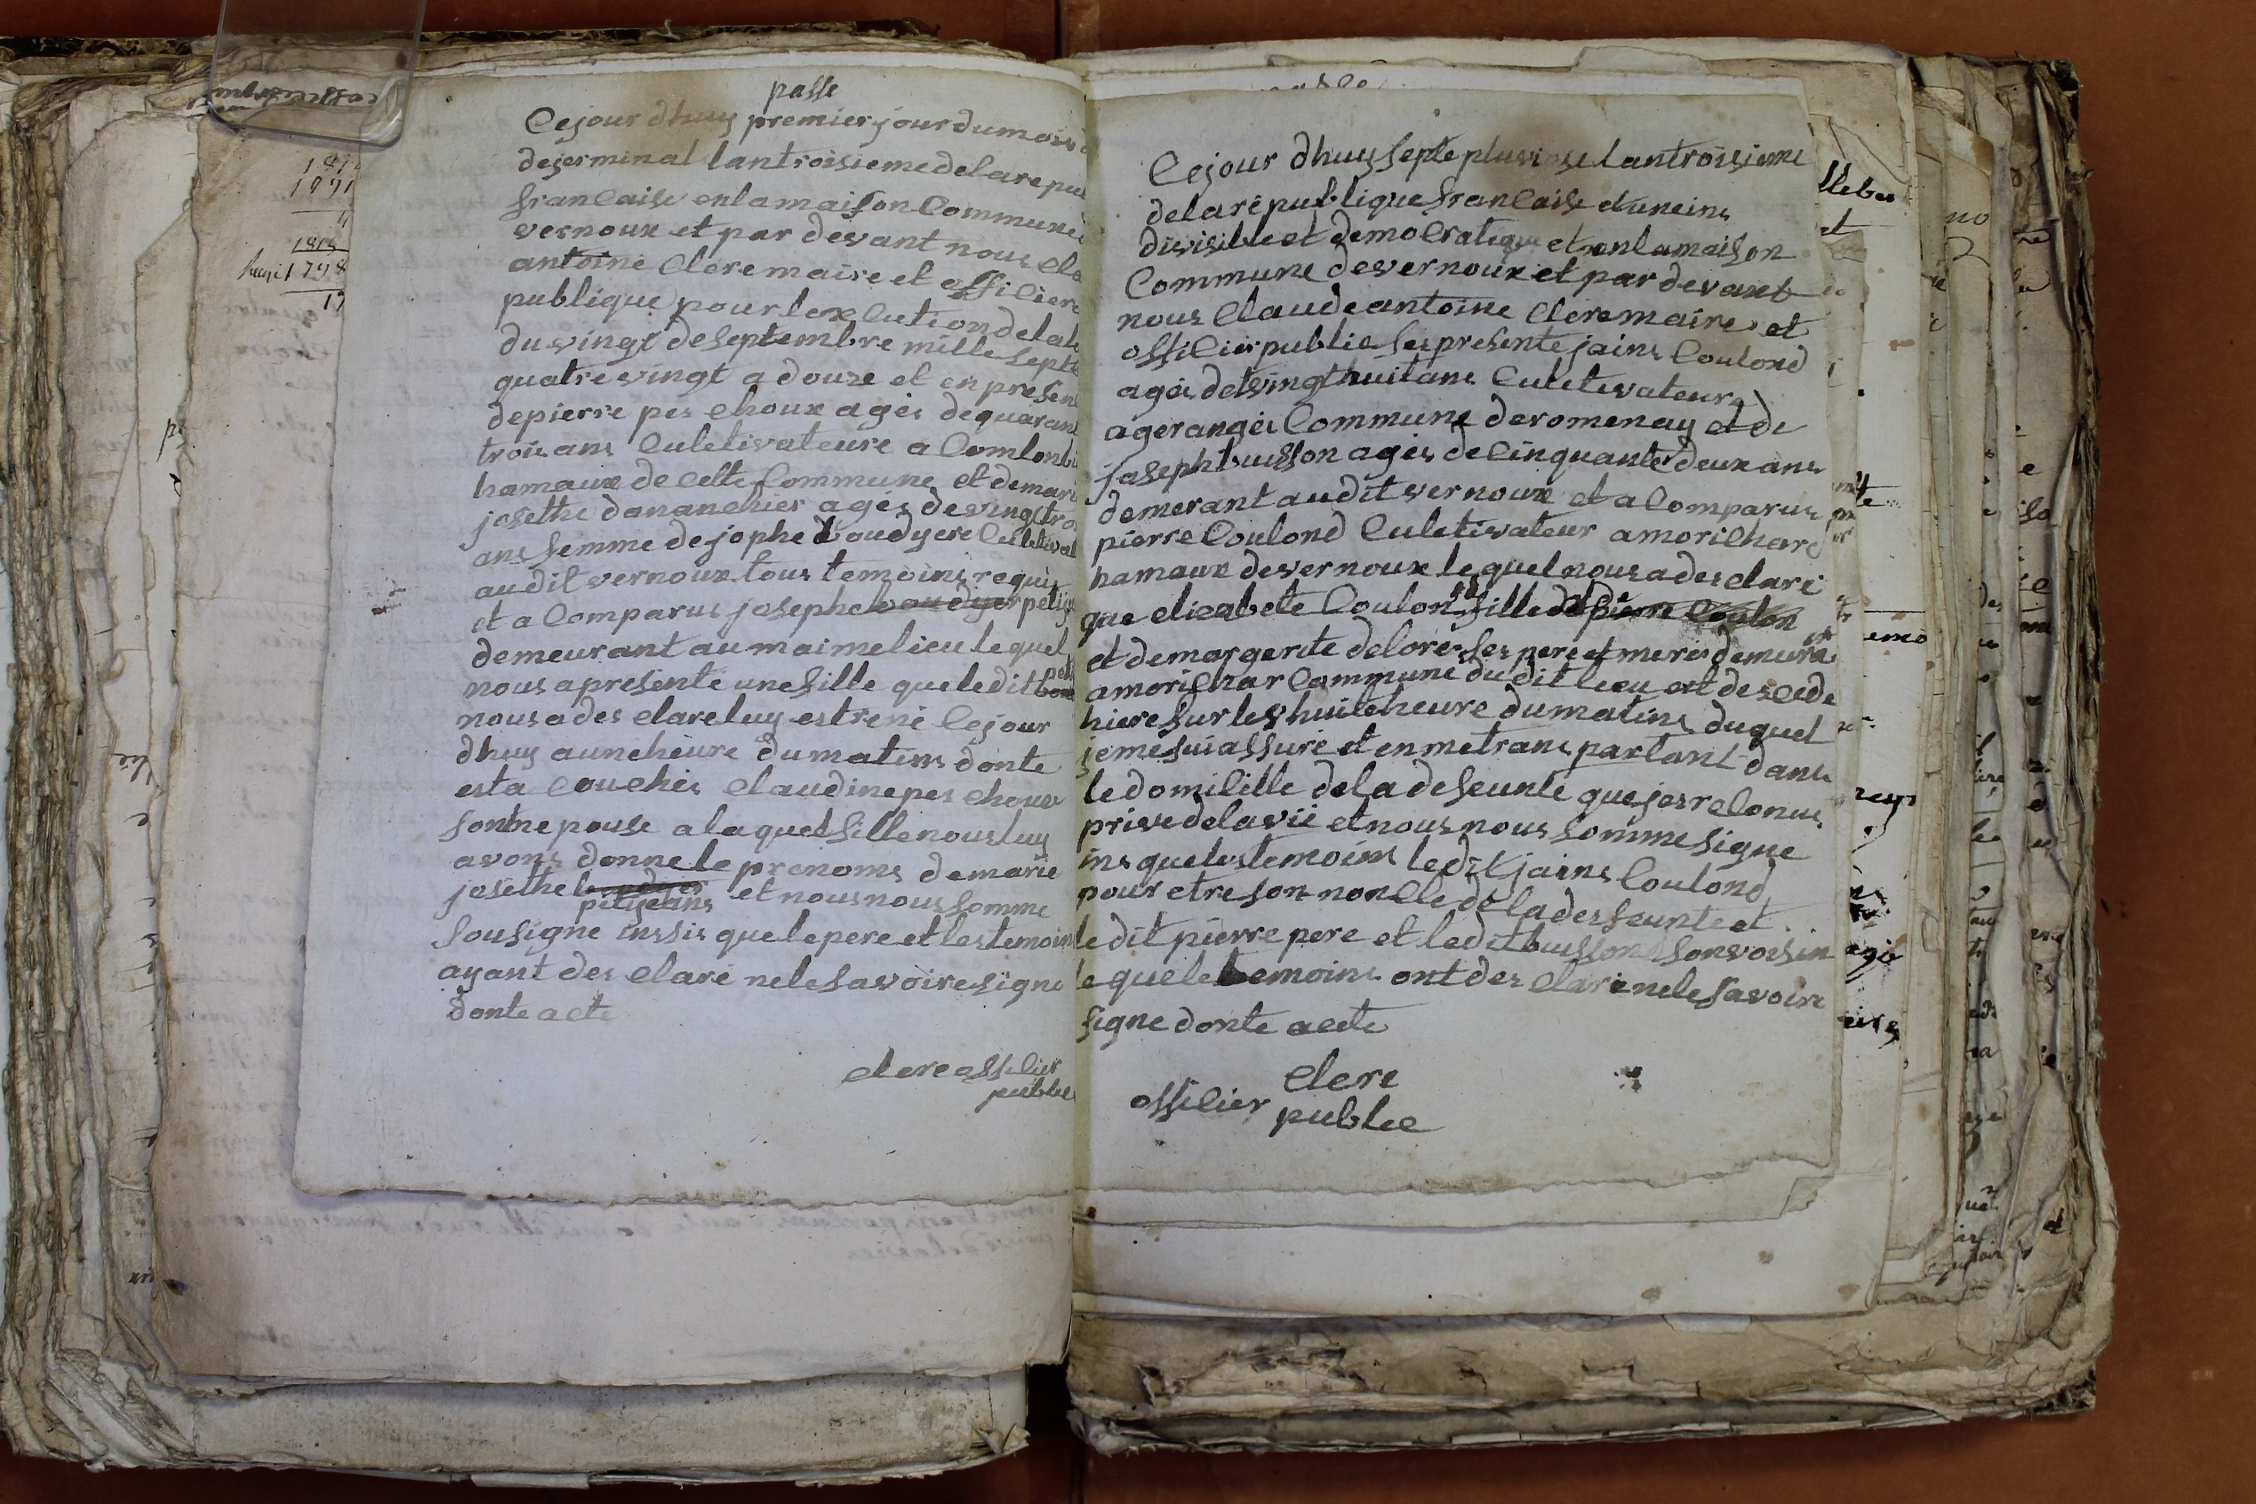 passe
Cejour dhuy premier jour dumois
degerminal lantroisieme delarepu
francaise enlamaison Commune
vernoux et par devant nous cla
antoine Clere maire et officiere
publique pour lexCution delale
duvingt deseptembre mille septe
quatre vingt a douze et en presen
depierre pes choux ages dequaran
trois ans Culetivateure a
hamaux de cette Commune et demari
josethe dananchier agés devingtro
ans femme de jophe boudyere Culetival
audit vernoux tous temoins requis
et a Comparus josephe boudyer petije
demeurant aumaimelieu lequel
nous apresente une fille queledit
nousades clareluy estrené lejour
dhuy aunehéure dumatins donte
esta Couchés Claudine pes choux
sontnepouse alaquel fille nousluy
avons donne le prenoms demarie
josethe
petijeans et nous nous somme
sousigne inssis quelepere et lestemoin
ayant des claré nelesavoiresigne
donte acte
clere offilier
public
Cejour dhuy septe pluviose lantroisieme
delarépublique francaise etuneins
divisible et democratique et enlamaison
Commune devernoux et par devant
nous Claudeantoine Cleremaire et
offilier public ses presente jains Coulond
agés devingthuitans Culetivateure
agerangés Commune deromenay et de
josephbuisson agés de Cinquante deux ans
demerant audit vernoux et a Comparus
pierre Coulond Culetivateur amorichard
hamaux devernoux lequel nousadesclare
que elisabete Coulon fille de pierre Coulon
et demargerite delore ses pere et meres demura
amorichar Commune dudit lieu est desCede
hiere sur les huiteheure dumatins duquel
jemesuiassuré et enmetrans partant dans
ledomicille deladefeunte quejesreConus
privedelavie et nousnous somme signe
ins queles temoins ledit jains Coulond
pour etre son nonClede ladesfeunte et
ledit pierre pere et ledit buisson sonvoisin
lequele temoins ont des claré nelesavoire
signe donte acte
Clere
offilier public